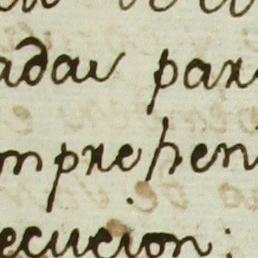 adas par
mprehen
ecucion;